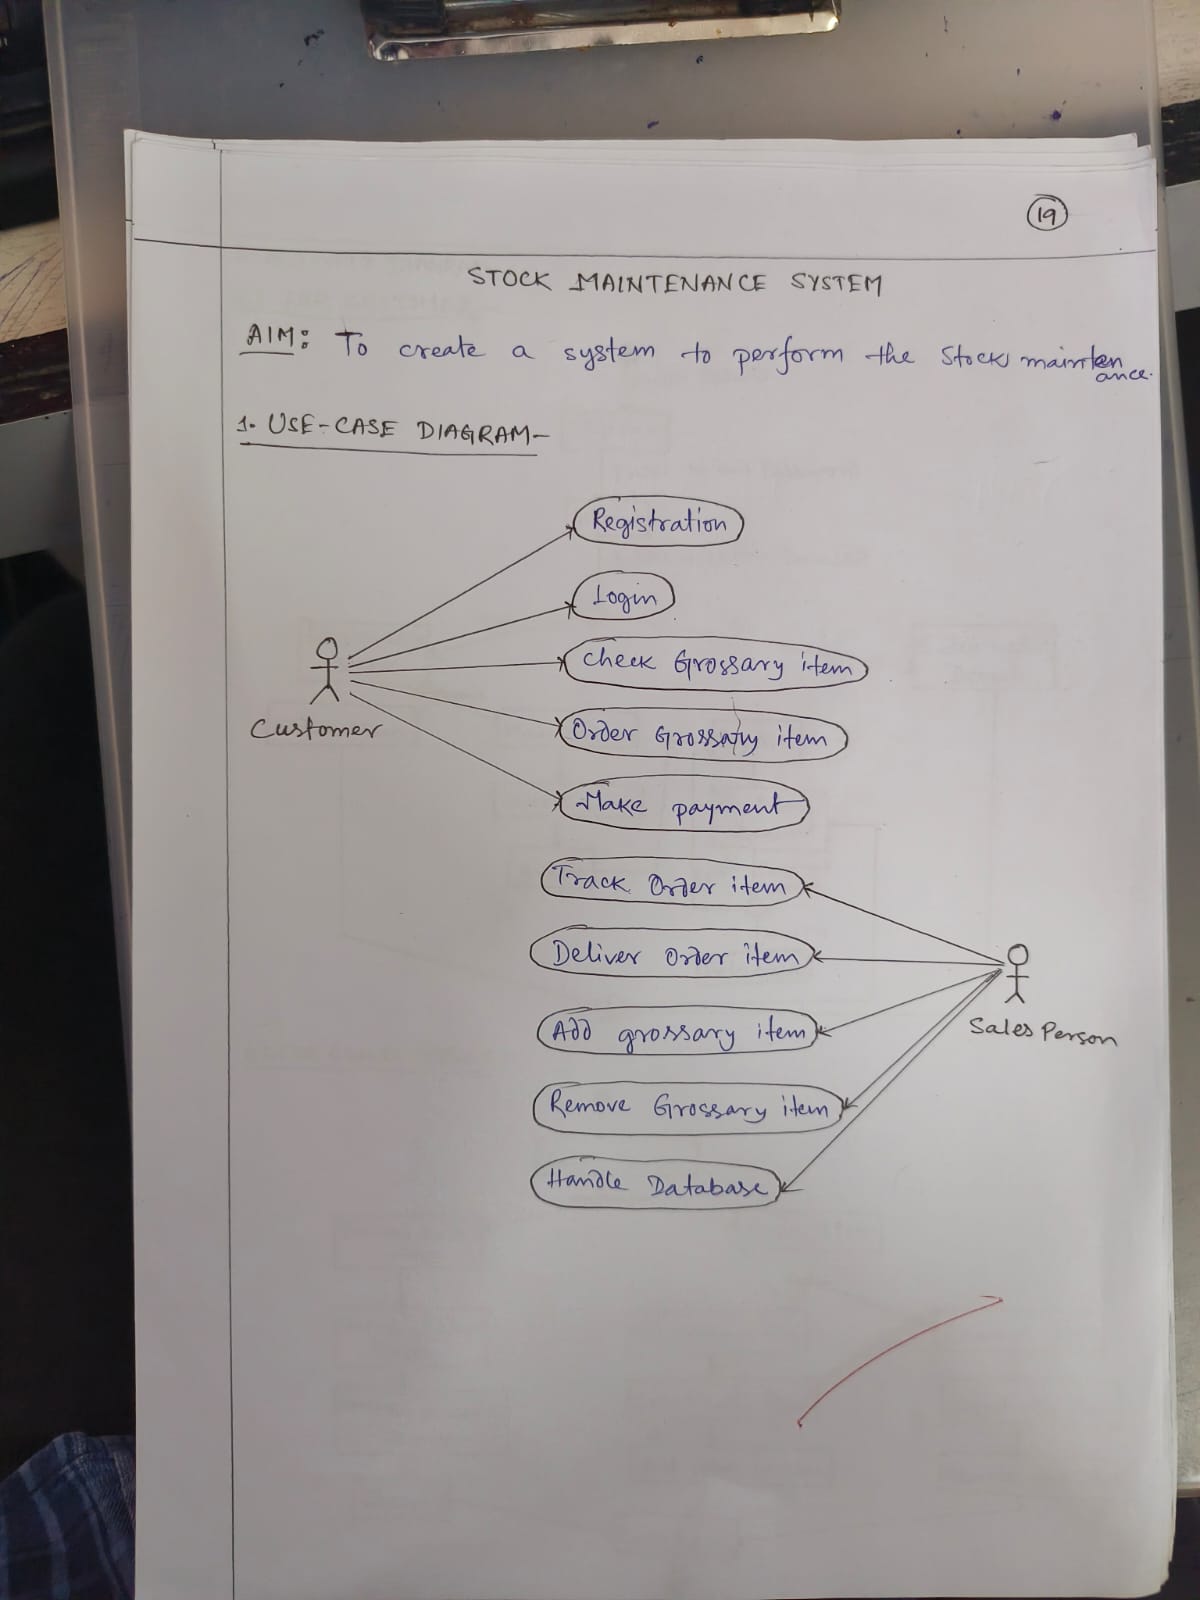 19
STOCK MAINTENANCE SYSTEM
AIM: To create a system to perform the Stock mainten
ance.
1. USE-CASE DIAGRAM-
Registration
Login
check Grossary item
Customer
Order Grossary item
Make payment
Track Order item
Deliver Order item
Add grossary item
Sales Person
Remove Grossary item
Handle Database